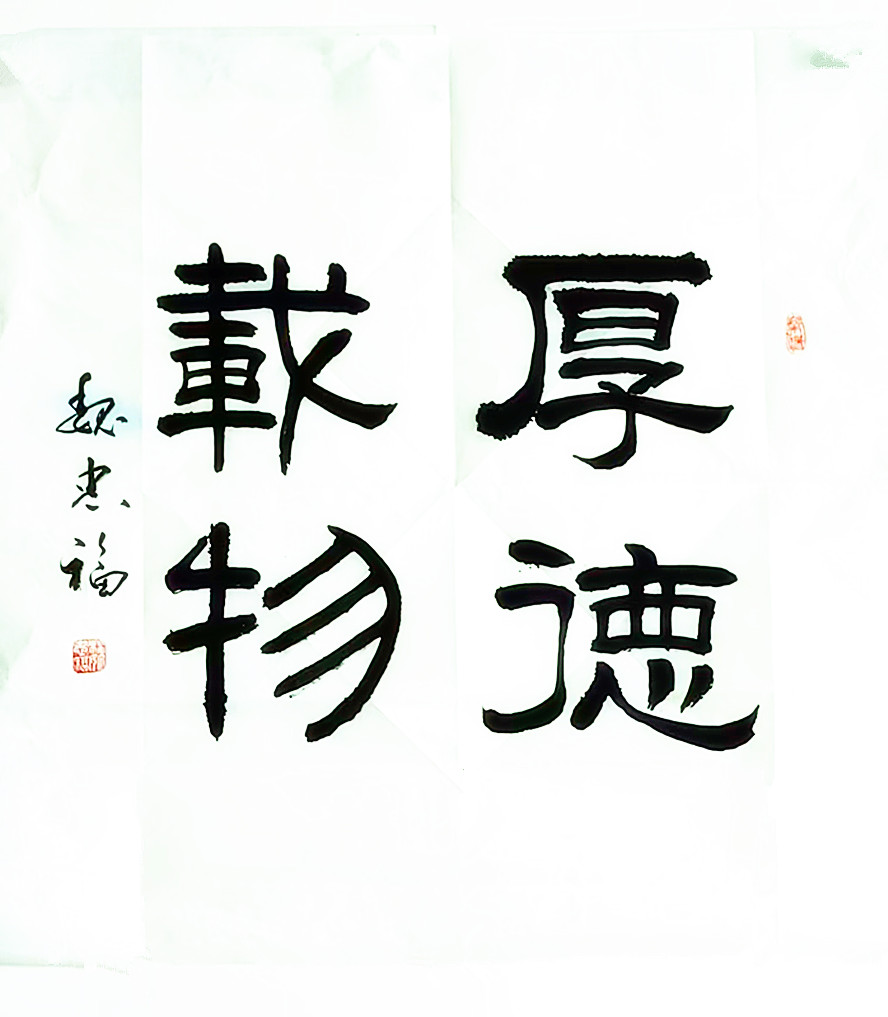 厚德
載物
魏忠福